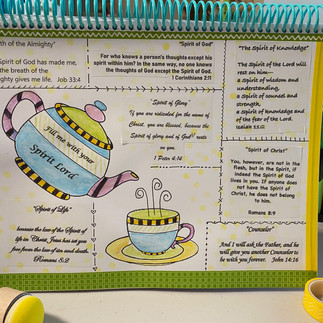 th of the Almighty"
Spirit of God has made me,
the breath of the
ghty gives me life. Job 33:4
"Spirit of God"
For who knows a person's thoughts except his
spirit within him? In the same way, no one knows
the thoughts of God except the Spirit of God.
1 Corinthians 2:11
"The Spirit of Knowledge"
The Spirit of the Lord will
rest on him—
a Spirit of wisdom and
understanding,
a Spirit of counsel and
strength,
a Spirit of knowledge and
of the fear of the Lord.
Isaiah 11:2
"Spirit of Glory"
If you are ridiculed for the name of
Christ, you are blessed, because the
Spirit of glory and of God rests
on you.
1 Peter 4:14
Fill me with your
Spirit Lord
"Spirit of Christ"
You, however, are not in the
flesh, but in the Spirit, if
indeed the Spirit of God
lives in you. If anyone
does not have the Spirit of
Christ, he does not belong
to him.
Romans 8:9
"Spirit of Life"
because the law of the Spirit of
life in Christ Jesus has set you
free from the law of sin and death.
Romans 8:2
"Counselor"
And I will ask the Father, and he
will give you another Counselor to
be with you forever. John 14:16